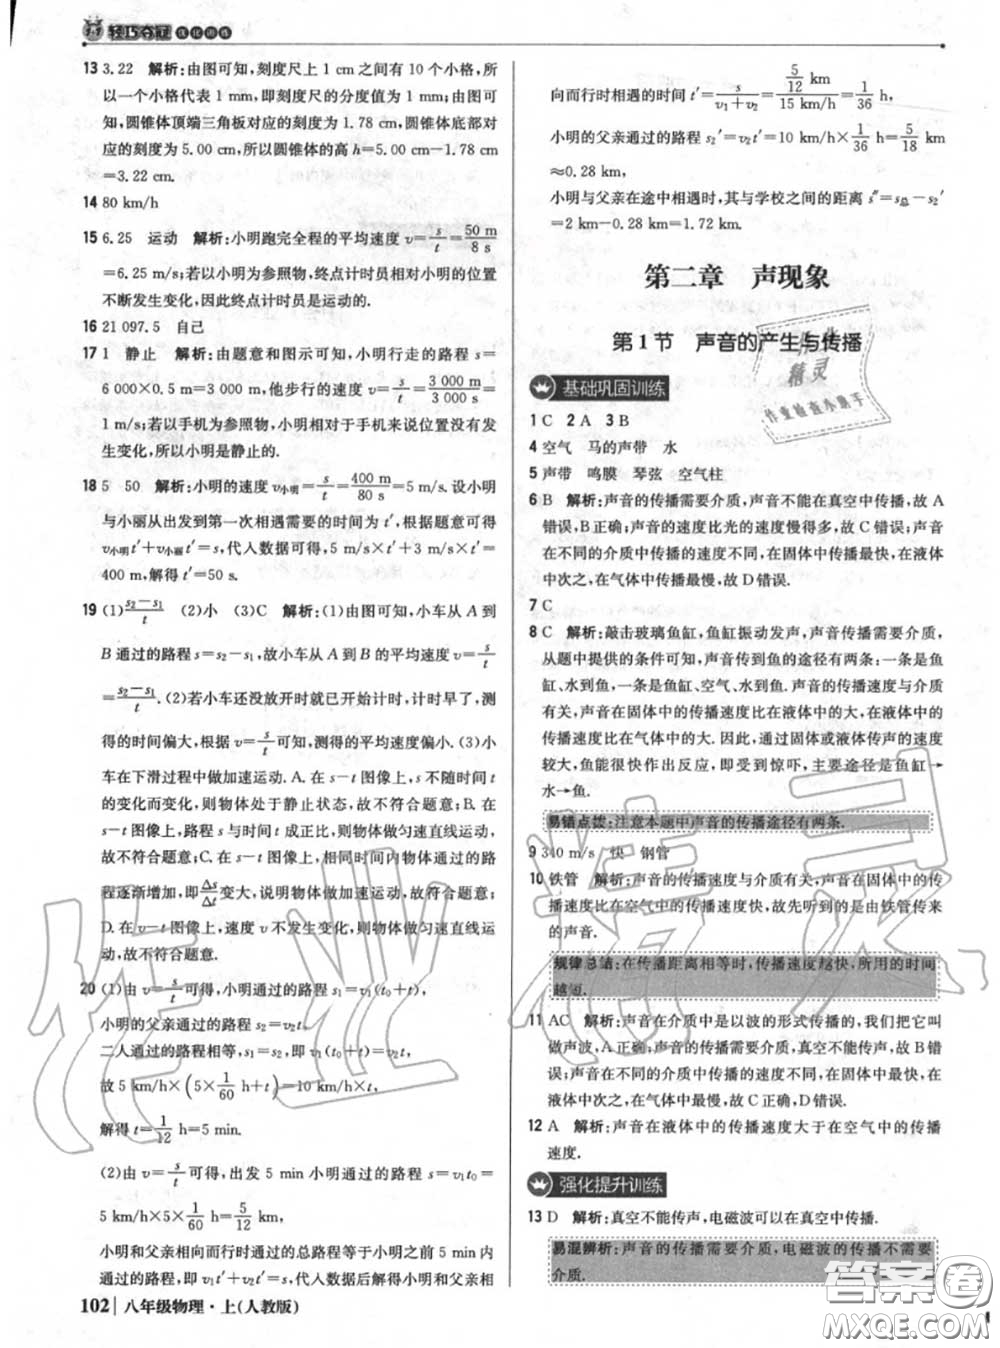 轻巧夺冠 优化训练
13 3.22 解析:由图可知,刻度尺上 1 cm之间有 10 个小格,所
以一个小格代表 1 mm,即刻度尺的分度值为 1 mm;由图可
知,圆锥体顶端三角板对应的刻度为 1.78 cm,圆锥体底部对
应的刻度为 5.00 cm,所以圆锥体的高 h=5.00 cm-1.78 cm
=3.22 cm.
14 80 km/h
15 6.25 运动 解析:小明跑完全程的平均速度 v=s/t=50 m/8 s
=6.25 m/s;若以小明为参照物,终点计时员相对小明的位置
不断发生变化,因此终点计时员是运动的.
16 21 097.5 自己
17 1 静止 解析:由题意和图示可知,小明行走的路程 s=
6 000×0.5 m=3 000 m,他步行的速度 v=s/t=3 000 m/3 000 s=
1 m/s;若以手机为参照物,小明相对于手机来说没有发生位置改
变,所以小明是静止的.
18 5 50 解析:小明的速度 v小明=s/t=400 m/80 s=5 m/s.设小明
与小丽从出发到第一次相遇需要的时间为 t′,根据题意可得
v小明t′+v小丽t′=s,代入数据可得,5 m/s×t′+3 m/s×t′=
400 m,解得 t′=50 s.
19 (1)s₂-s₁/t (2)小 (3)C 解析:(1)由图可知,小车从 A 到
B 通过的路程 s=s₂-s₁,故小车从 A 到 B 的平均速度 v=s/t
=s₂-s₁/t.(2)若小车还没放开时就已计时,计时早了,测
得的时间偏大,根据 v=s/t可知,测得的平均速度偏小.(3)小
车在下滑过程中做加速运动.A.在 s-t 图像上,s不随时间 t
的变化而变化,则物体处于静止状态,故不符合题意;B.在
s-t 图像上,路程 s 与时间 t 成正比,则物体做匀速直线运动,
故不符合题意;C.在 s-t 图像上,相同时间内物体通过的路
程逐渐增加,即Δs/Δt变大,说明物体做加速运动,故符合题意;
D.在 v-t 图像上,速度 v 不发生变化,则物体做匀速直线运
动,故不符合题意.
20 (1)由 v=s/t可得,小明通过的路程 s₁=v₁(t₀+t),
小明的父亲通过的路程 s₂=v₂t.
二人通过的路程相等,s₁=s₂,即 v₁(t₀+t)=v₂t,
故 5 km/h×(5×1/60 h+t)=10 km/h×t,
解得 t=1/12 h=5 min.
(2)由 v=s/t可得,出发 5 min 小明通过的路程 s=v₁t₀=
5 km/h×5×1/60 h=5/12 km,
小明和父亲相向而行时通过的总路程等于小明之前 5 min 内
通过的路程,即 v₁t′+v₂t′=s,代入数据后解得小明和父亲相
102 八年级物理·上(人教版)
向而行时相遇的时间 t′=s/(v₁+v₂)=(5/12 km)/(15 km/h)=1/36 h,
小明的父亲通过的路程 s₂′=v₂t′=10 km/h×1/36 h=5/18 km
≈0.28 km,
小明与父亲在途中相遇时,其与学校之间的距离 s″=s总-s₂′
=2 km-0.28 km=1.72 km.
第二章 声现象
第 1 节 声音的产生与传播
基础巩固训练
1 C 2 A 3 B
4 空气 马的声带 水
5 声带 鸣膜 琴弦 空气柱
6 B 解析:声音的传播需要介质,声音不能在真空中传播,故 A
错误,B正确;声音的速度比光的速度慢得多,故 C 错误;声音
在不同的介质中传播的速度不同,在固体中传播最快,在液体
中次之,在气体中传播最慢,故 D 错误.
7 C
8 C 解析:敲击玻璃鱼缸,鱼缸振动发声,声音传播需要介质,
从题中提供的条件可知,声音传到鱼的途径有两条:一条是鱼
缸、水到鱼,一条是鱼缸、空气、水到鱼.声音的传播速度与介质
有关,声音在固体中的传播速度比在液体中的大,在液体中的
传播速度比在气体中的大.因此,通过固体或液体传声的速度
较大,鱼能很快作出反应,即受到惊吓,主要途径是鱼缸→
水→鱼.
易错点拨:注意本题中声音的传播途径有两条.
9 340 m/s 快 钢管
10 铁管 解析:声音的传播速度与介质有关,声音在固体中的传
播速度比在空气中的传播速度快,故先听到的是由铁管传来
的声音.
规律总结:在传播距离相等时,传播速度越快,所用的时间
越短.
11 AC 解析:声音在介质中是以波的形式传播的,我们把它叫
做声波,A 正确;声音的传播需要介质,真空不能传声,B 错
误;声音在不同的介质中传播的速度不同,在固体中最大,在
液体中次之,在气体中最小,C 正确,D 错误.
12 A 解析:声音在液体中的传播速度大于在空气中的传播
速度.
强化提升训练
13 D 解析:真空不能传声,电磁波可以在真空中传播.
易混辨析:声音的传播需要介质,电磁波的传播不需要
介质.
作业精灵
精灵
作业检查小助手
答案卷
MXQE.COM